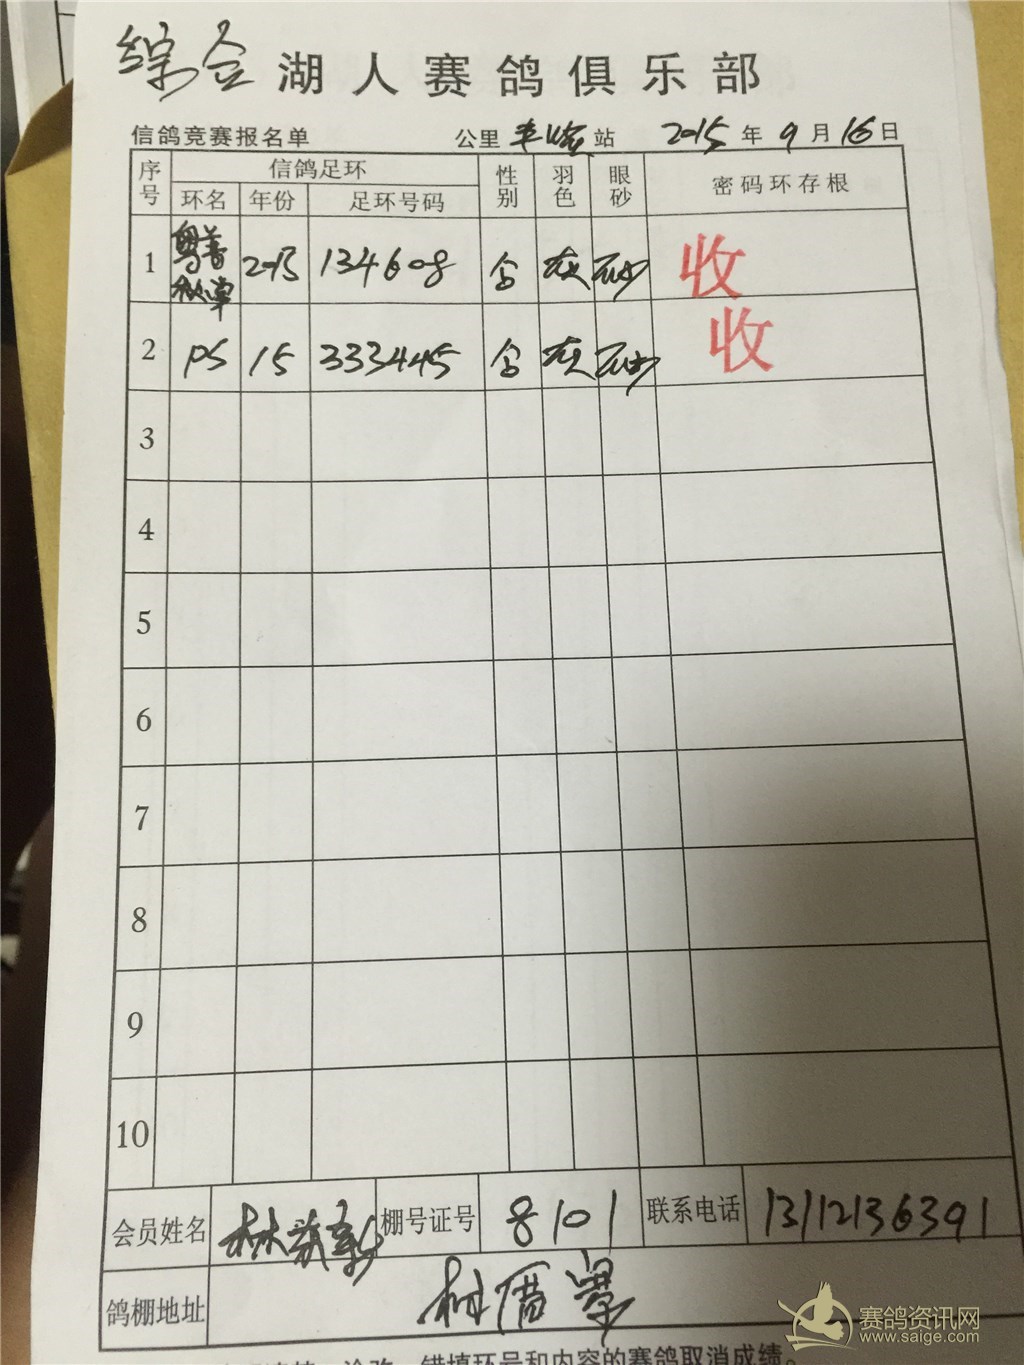 综合 湖人赛鸽俱乐部
信鸽竞赛报名单 公里 站 2015 年 9 月 16 日
序号 信鸽足环 性别 羽色 眼砂 密码环存根
环名 年份 足环号码
1 2015 134608 灰 砂 收
2 PS 15 333445 灰 砂 收
3
4
5
6
7
8
9
10
会员姓名 林 新 棚号证号 8101 联系电话 13112136391
鸽棚地址
错填环号和内容的赛鸽取消成绩。
赛鸽资讯网
www.saige.com